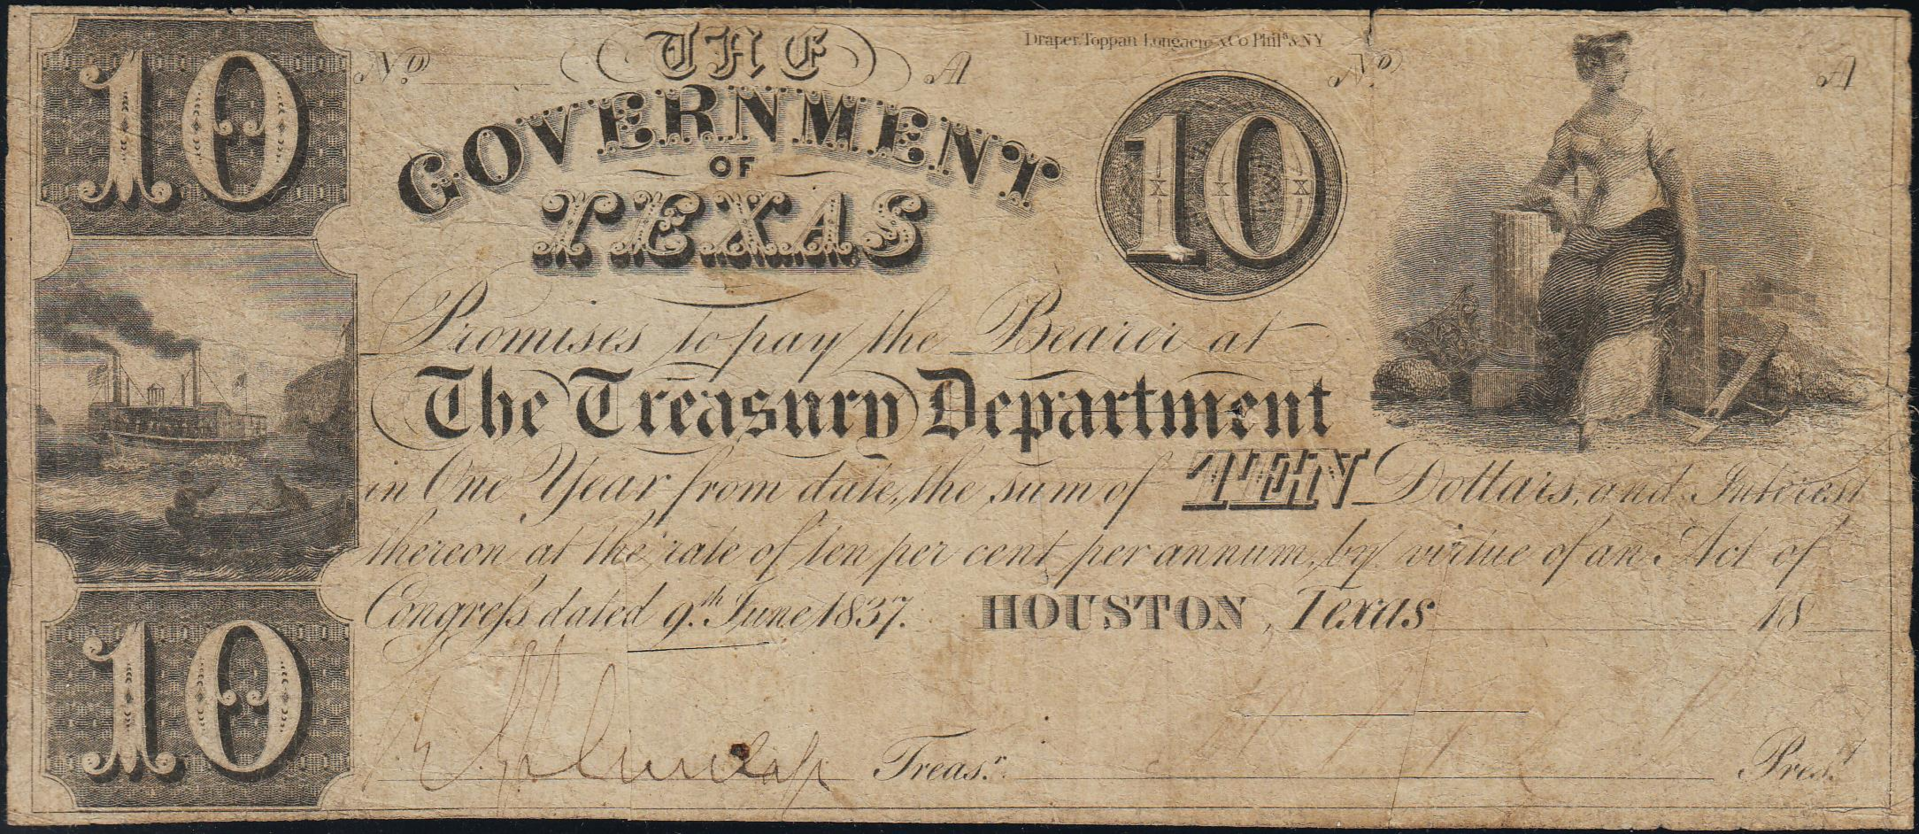 10
No. THE A
Draper, Toppan, Longacre & Co. Phila. & N.Y.
No. A
GOVERNMENT
OF
TEXAS
10
Promises to pay the Bearer at
The Treasury Department
in One Year from date, the sum of TEN Dollars, and Interest
thereon at the rate of ten per cent per annum, by virtue of an Act of
Congress dated 9th. June 1837. HOUSTON, Texas 18
10
Dunlap Treasr. Prest.